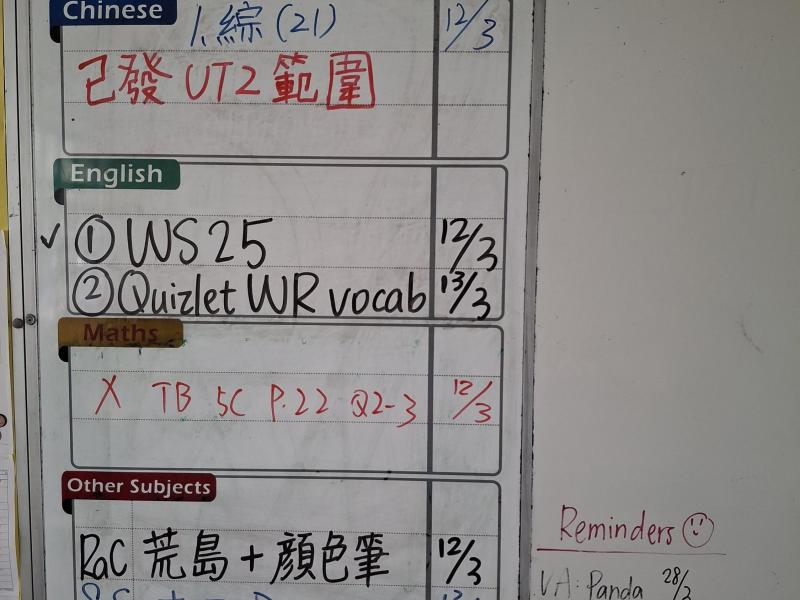 Chinese
1. 綜 (21) 12/3
已發 UT2 範圍
English
✓ ① WS 25 12/3
② Quizlet WR vocab 13/3
Maths
X TB 5C P.22 Q2-3 12/3
Other Subjects
RaC 荒島 + 顏色筆 12/3
Reminders ☺
VA: Panda 28/2